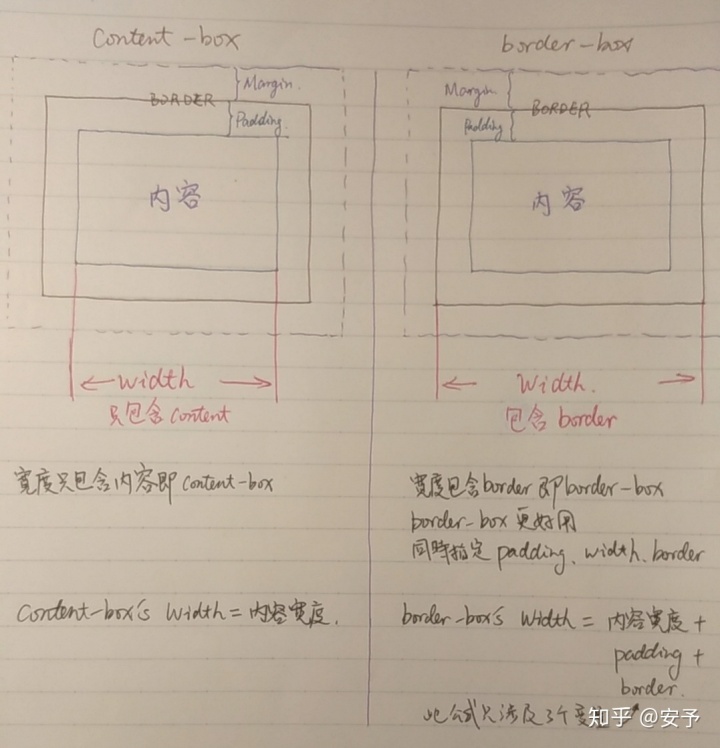 Content-box
Margin.
BORDER
Padding.
内容
width
只包含 content
宽度只包含内容即 content-box
Content-box's Width = 内容宽度.
border-box
Margin.
BORDER
Padding
内容
Width.
包含 border
宽度包含border 即 border-box
border-box 更好用
同時指定 padding、width、border
border-box's Width = 内容宽度 +
padding +
border.
此公式只涉及3个变
知乎 @安予